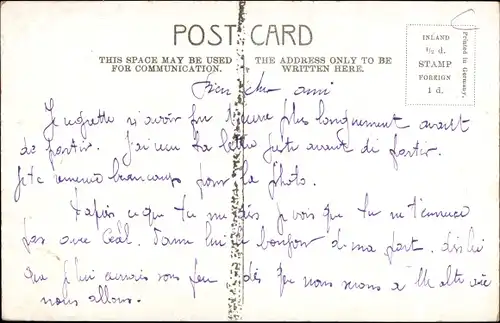 POST CARD
THIS SPACE MAY BE USED
FOR COMMUNICATION.
THE ADDRESS ONLY TO BE
WRITTEN HERE.
INLAND
½ d.
STAMP
FOREIGN
1 d.
Printed in Germany.
Bien cher ami
Je regrette n'avoir pu t'écrire plus longuement avant
de partir. J'ai reçu ta lettre juste avant de partir.
Je te remercie beaucoup pour la photo.
D'après ce que tu me dis je vois que tu ne t'ennuies
pas avec Cécil. Donne lui le bonjour de ma part. dis lui
que je lui écrirais sous peu dès que nous serons à
nous allons.